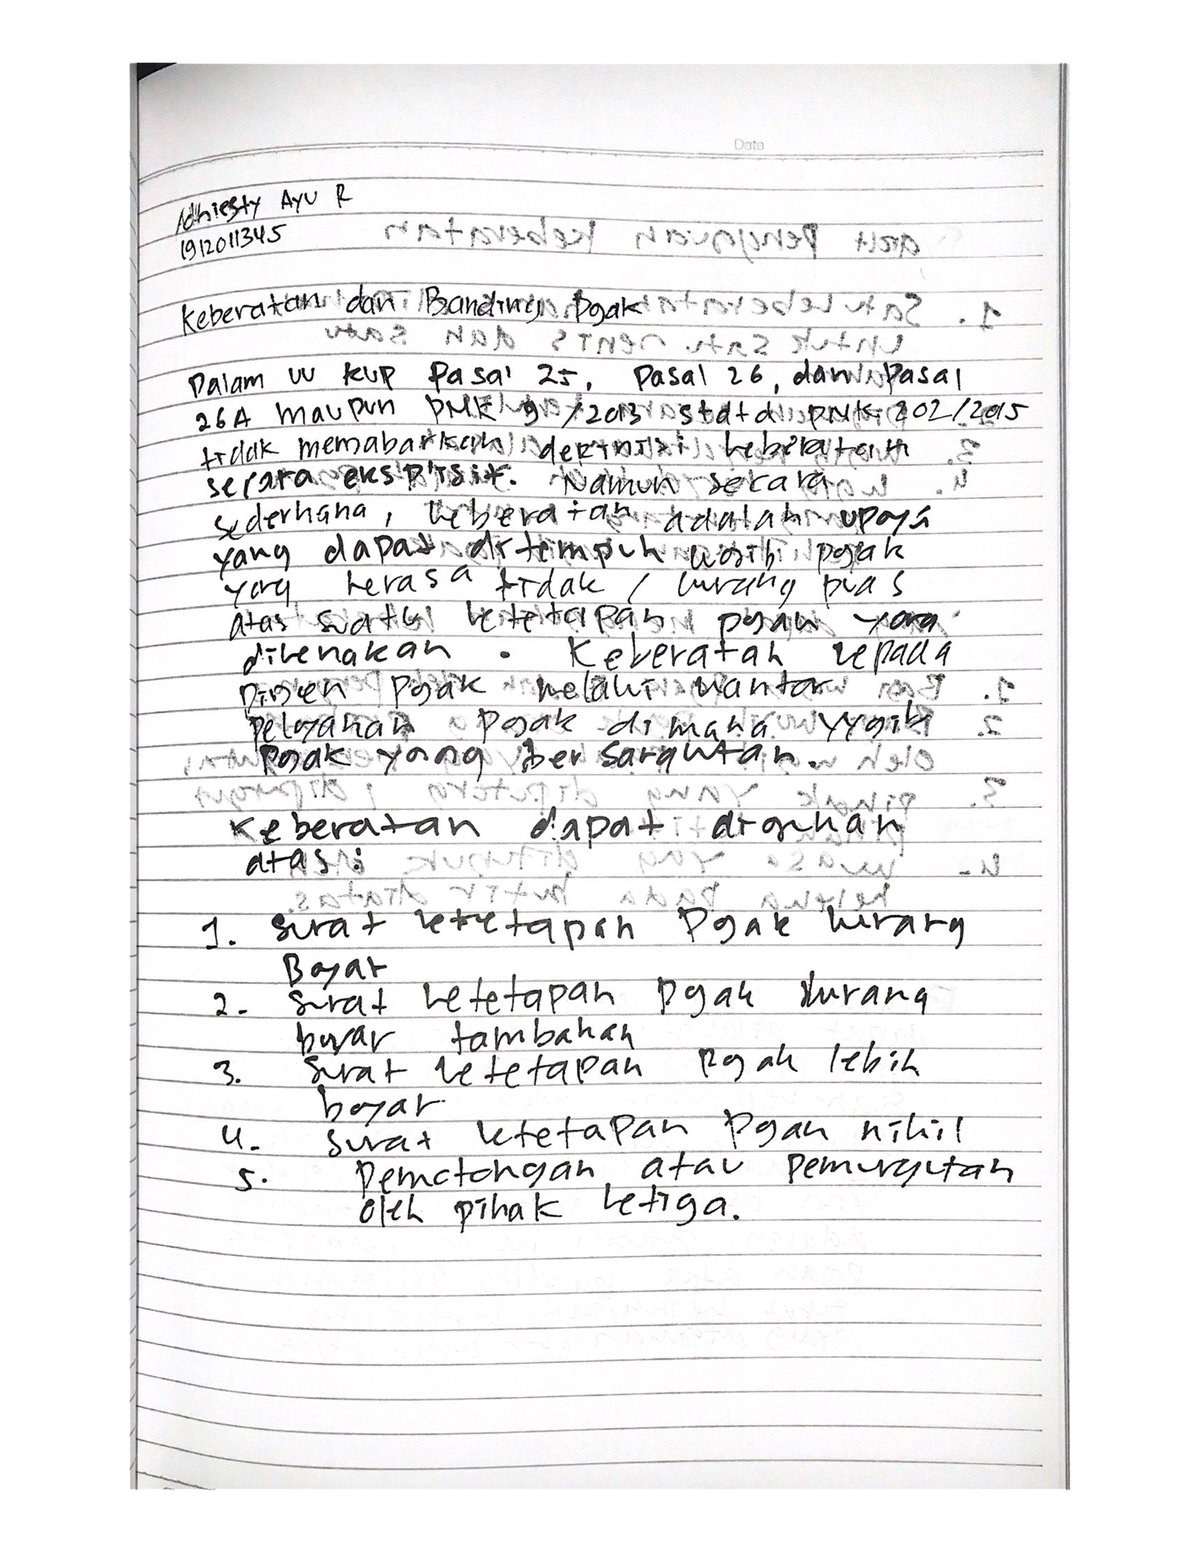 Date
Adhiesty Ayu R
1912011345
Keberatan dan Banding Pajak
Dalam UU KUP Pasal 25, Pasal 26, dan Pasal
26A maupun PMK 9 /2013 stdtd PMK 202/2015
tidak memabarkan definisi keberatan
secara eksplisit. Namun secara
sederhana, keberatan adalah upaya
yang dapat ditempuh wajib pajak
yang merasa tidak / kurang puas
atas suatu ketetapan pajak yang
dikenakan. Keberatan kepada
Dirjen Pajak melalui kantor
Pelayanan Pajak dimana wajib
Pajak yang bersangkutan.
Keberatan dapat diajukan
atas:
1. Surat ketetapan Pajak kurang
Bayar
2. Surat ketetapan Pajak kurang
bayar tambahan
3. Surat ketetapan Pajak lebih
bayar
4. Surat ketetapan Pajak nihil
5. Pemotongan atau Pemungutan
oleh pihak ketiga.